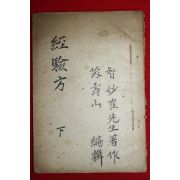 智妙崔先生著作
蔡壽山 編輯
經驗方 下